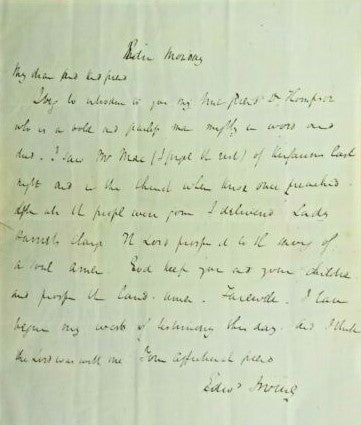 Monday
My dear and kind friend
I beg to introduce to you my true friend Dr Thompson
who is a noble and godly man mighty in word and
deed. I saw Mr (I forget the rest) of last
night and in the church where Knox once preached
after all the people were gone I delivered Lady
Harriets charge. The Lord prosper it to the saving of
a soul amen. God keep you and your children
and prosper the land. amen. Farewell. I have
begun my work of testimony this day. and I think
the Lord was with me Your affectionate friend
Edwd Irving